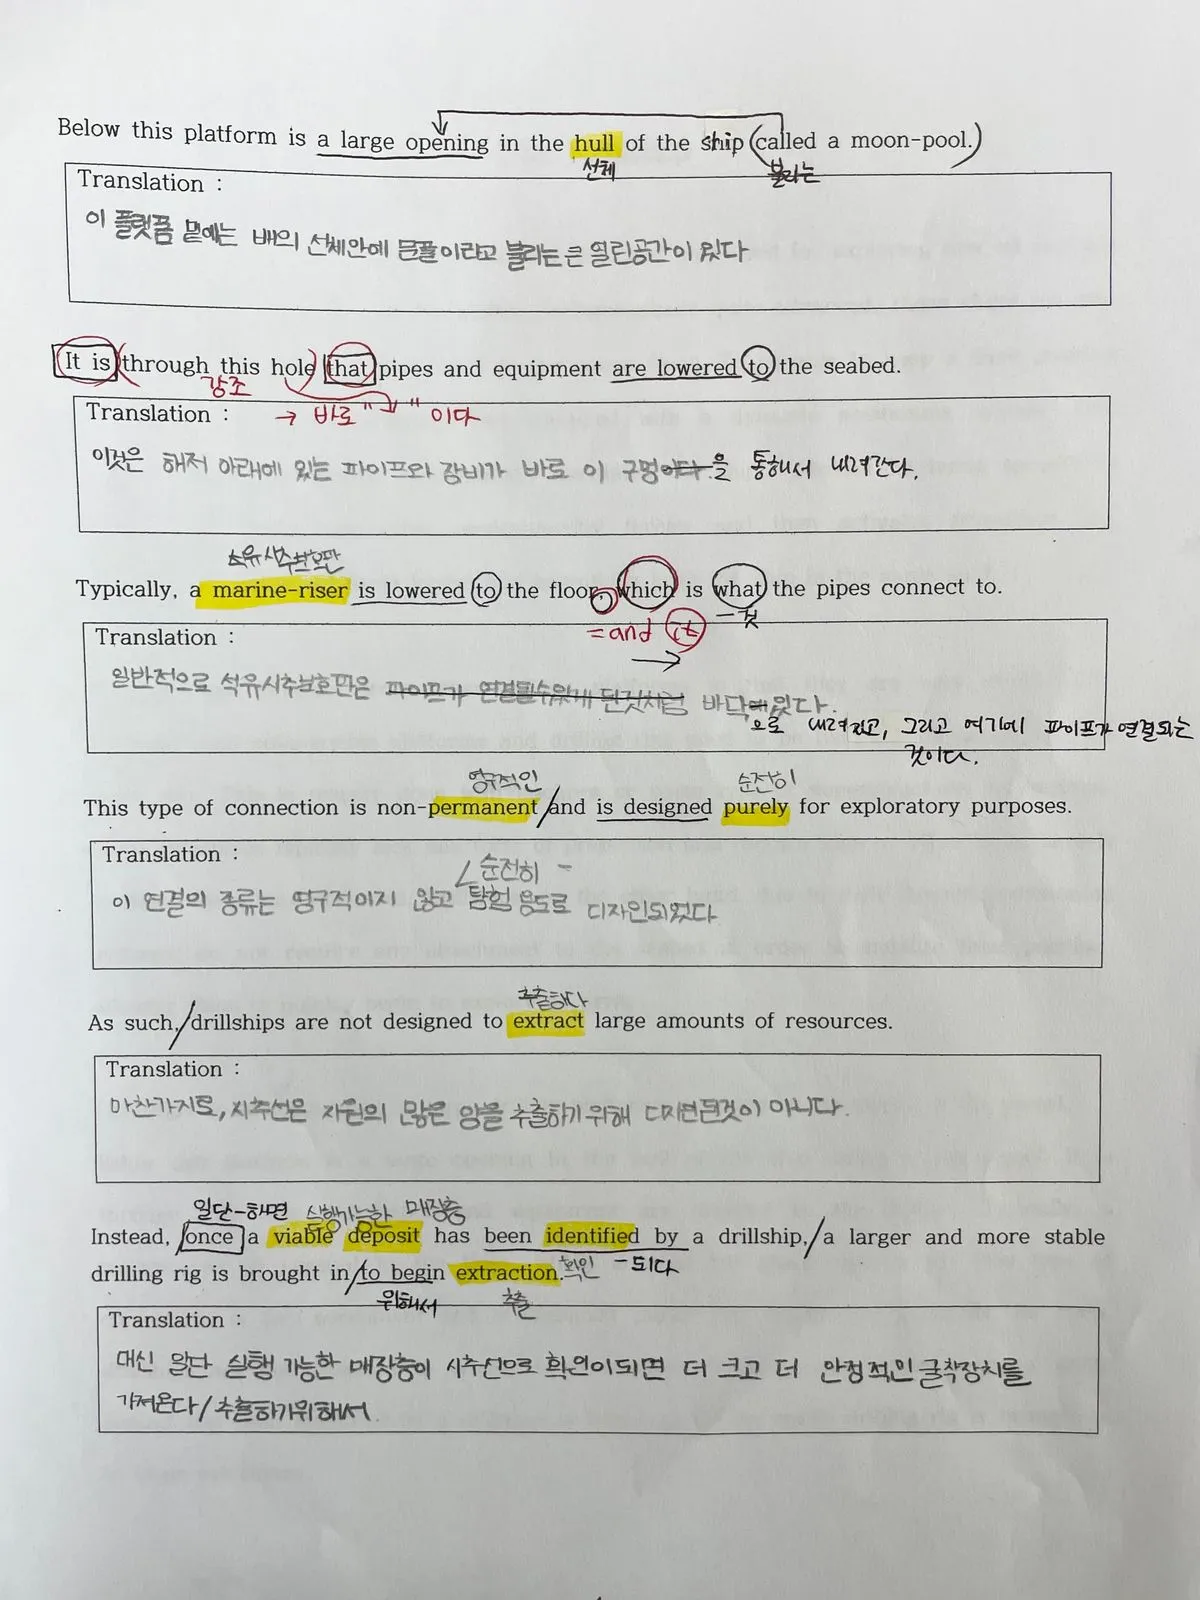 Below this platform is a large opening in the hull of the ship (called a moon-pool.)
선체 불리는
Translation :
이 플랫폼 밑에는 배의 선체안에 문풀이라고 불리는 큰 열린공간이 있다
It is (through this hole) that pipes and equipment are lowered to the seabed.
강조
Translation : → 바로 " ~ " 이다
이것은 해저 아래에 있는 파이프와 장비가 바로 이 구멍이다.을 통해서 내려간다.
석유시추보호판
Typically, a marine-riser is lowered to the floor, which is what the pipes connect to.
= and it -것
→
Translation :
일반적으로 석유시추보호판은 파이프가 연결될수있게 된것처럼 바닥에있다.
으로 내려지고, 그리고 여기에 파이프가 연결되는
것이다.
영구적인 순전히
This type of connection is non-permanent/and is designed purely for exploratory purposes.
Translation :
순전히 -
이 연결의 종류는 영구적이지 않고 탐험 용도로 디자인되었다
추출하다
As such,/drillships are not designed to extract large amounts of resources.
Translation :
마찬가지로, 시추선은 자원의 많은 양을 추출하기 위해 디자인된것이 아니다.
일단-하면 실행가능한 매장층
Instead, /once a viable deposit has been identified by a drillship,/a larger and more stable
drilling rig is brought in/to begin extraction. 확인 -되다
위해서 추출
Translation :
대신 일단 실행 가능한 매장층이 시추선으로 확인이되면 더 크고 더 안정적인 굴착장치를
가져온다/추출하기위해서.